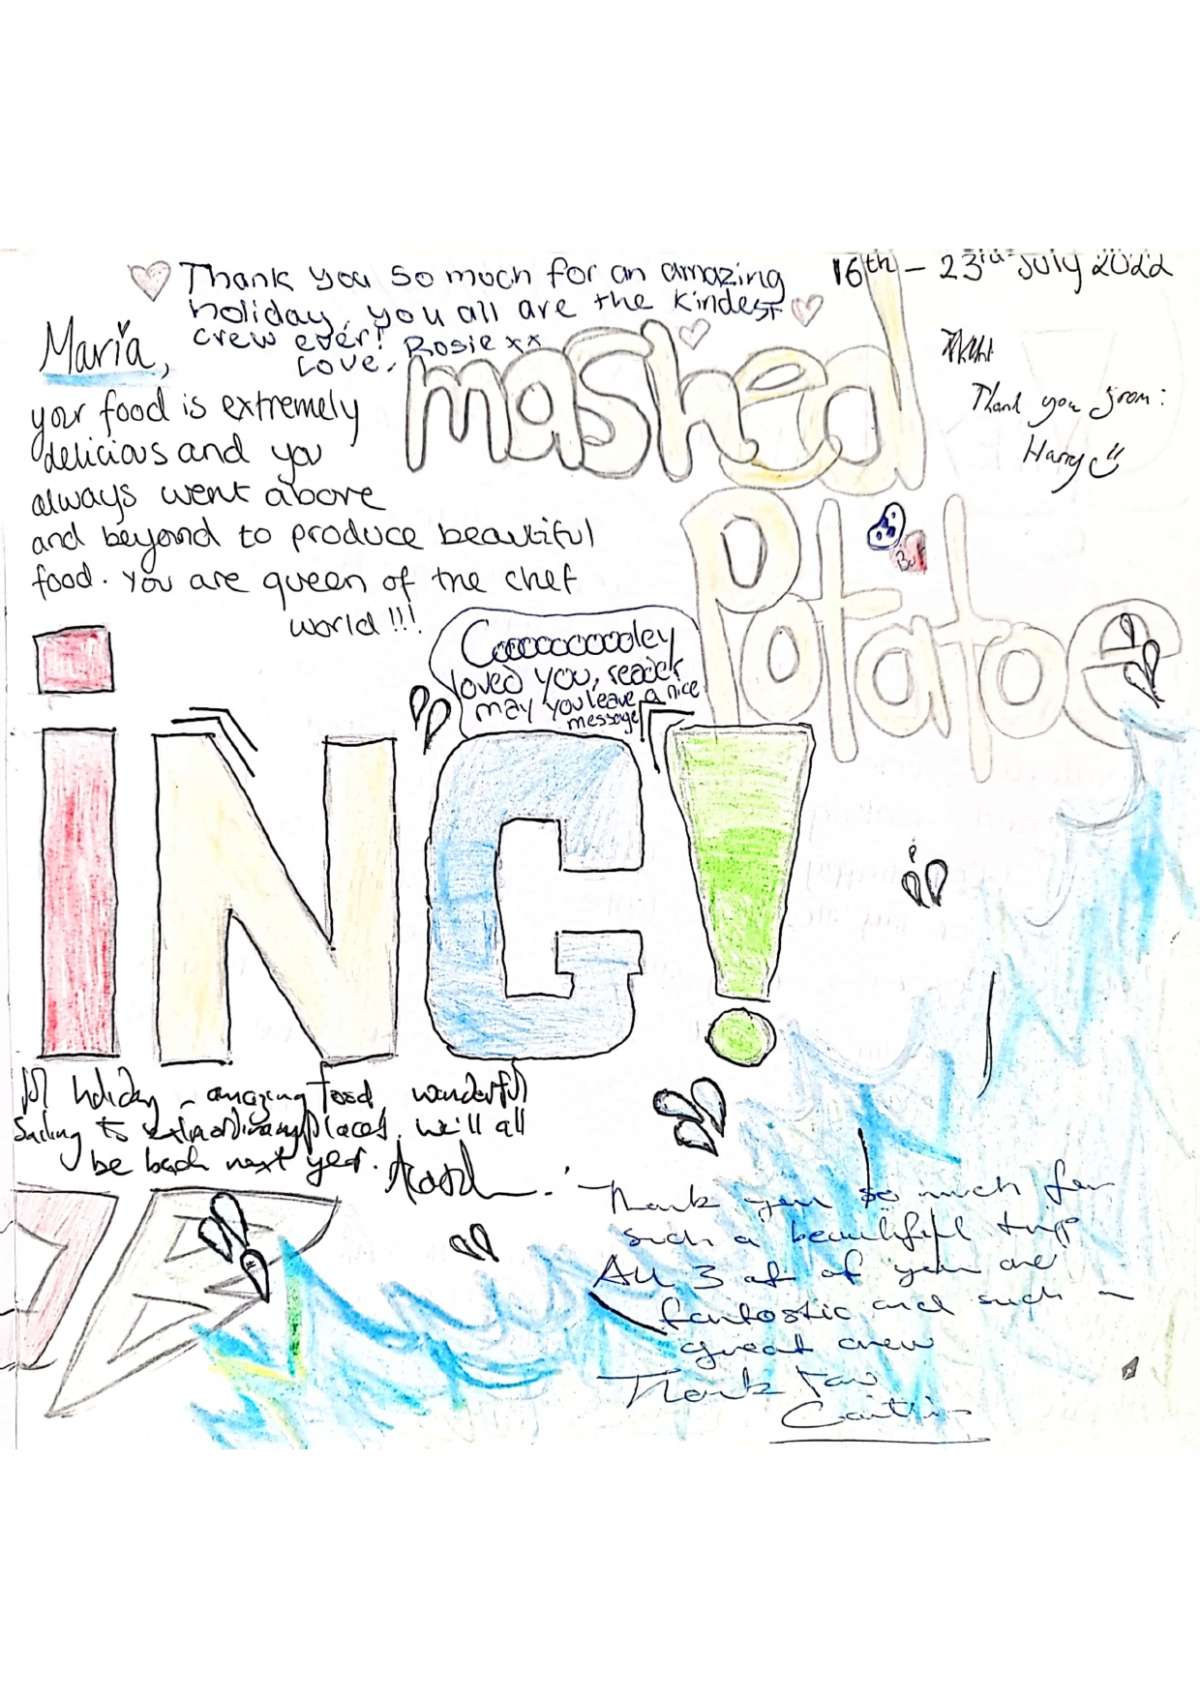 Thank you so much for an amazing
holiday, you all are the kindest
crew ever!
Love, Rosie xx
16th - 23rd July 2022
Maria,
your food is extremely
delicious and you
always went above
and beyond to produce beautiful
food. You are queen of the chef
world!!!
mashed
Potatoe
Thank you from:
Harry
Coooooooooley
loved you, reader
may you leave a nice
message
iNG!
holiday - amazing food wonderful
Sailing to extraordinary places. We'll all
be back next year.
Thank you so much for
such a beautiful trip
All 3 of of you are
fantastic and such a
great crew
Thank You
Caitlin